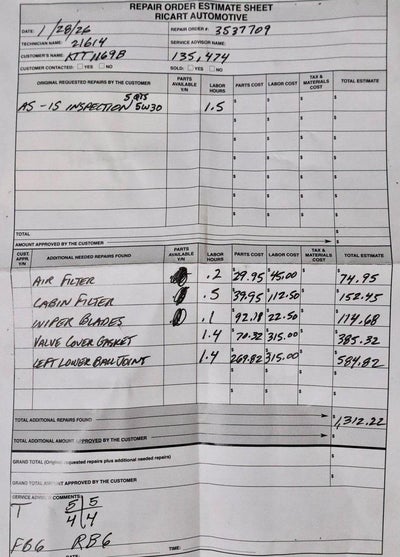 REPAIR ORDER ESTIMATE SHEET
RICART AUTOMOTIVE
DATE: 1/28/26 REPAIR ORDER #: 3537709
TECHNICIAN NAME: 21614 SERVICE ADVISOR NAME:
CUSTOMER'S NAME: KTT1169B 135,474
CUSTOMER CONTACTED: YES NO SOLD: YES NO
ORIGINAL REQUESTED REPAIRS BY THE CUSTOMER PARTS AVAILABLE Y/N LABOR HOURS PARTS COST LABOR COST TAX & MATERIALS COST TOTAL ESTIMATE
5 QTS
AS-IS INSPECTION 5W30 1.5 $ $ $ $
$ $ $ $
$ $ $ $
$ $ $ $
$ $ $ $
$ $ $ $
TOTAL $
AMOUNT APPROVED BY THE CUSTOMER $
CUST. APPR. Y/N ADDITIONAL NEEDED REPAIRS FOUND PARTS AVAILABLE Y/N LABOR HOURS PARTS COST LABOR COST TAX & MATERIALS COST TOTAL ESTIMATE
AIR FILTER .2 $29.95 $45.00 $ $74.95
CABIN FILTER .5 $39.95 $112.50 $ $152.45
WIPER BLADES .1 $92.18 $22.50 $ $114.68
VALVE COVER GASKET 1.4 $70.32 $315.00 $ $385.32
LEFT LOWER BALL JOINT 1.4 $269.82 $315.00 $ $584.82
$ $ $ $
TOTAL ADDITIONAL REPAIRS FOUND $1,312.22
TOTAL ADDITIONAL AMOUNT APPROVED BY THE CUSTOMER $
GRAND TOTAL (Original requested repairs plus additional needed repairs) $
GRAND TOTAL AMOUNT APPROVED BY THE CUSTOMER $
SERVICE ADVISOR COMMENTS
T 5 5
4 4
FB6 RB6 TIME: